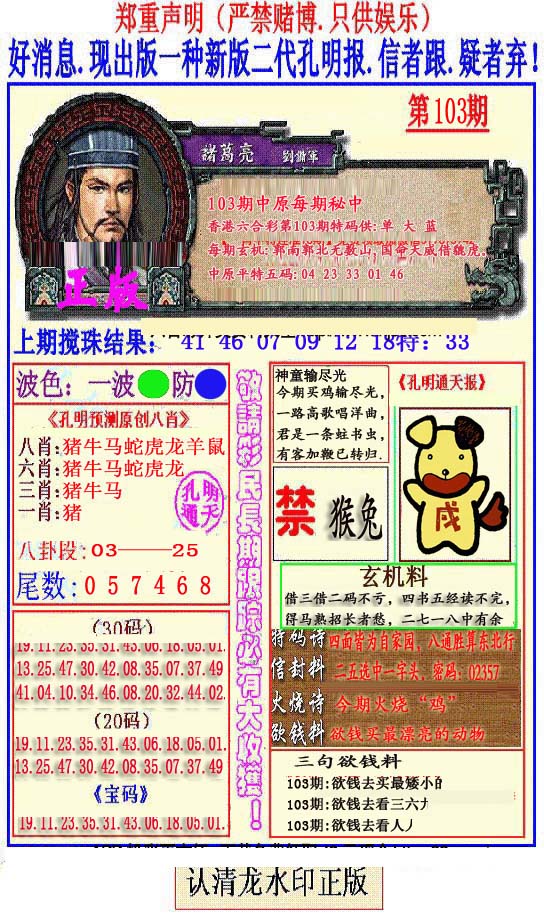 郑重声明（严禁赌博.只供娱乐）
好消息.现出版一种新版二代孔明报.信者跟.疑者弃!
第103期
諸葛亮 劉備軍
103期中原每期秘中
香港六合彩第103期特码供:单 大 蓝
每期玄机:郭南郭北无数山,国命天威借貔虎.
中原平特五码:04 23 33 01 46
正版
上期搅珠结果: 41 46 07 09 12 18特:33
波色:一波 防
《孔明预测原创八肖》
八肖:猪牛马蛇虎龙羊鼠
六肖:猪牛马蛇虎龙
三肖:猪牛马
一肖:猪
孔明
通天
八卦段:03——25
尾数:057468
(30码)
19.11.23.35.31.43.06.18.05.01.
13.25.47.30.42.08.35.07.37.49
41.04.10.34.46.08.20.32.44.02.
(20码)
19.11.23.35.31.43.06.18.05.01.
13.25.47.30.42.08.35.07.37.49
《宝码》
19.11.23.35.31.43.06.18.05.01.
敬請彩民長期跟踪必有大收獲!
神童输尽光
今期买鸡输尽光,
一路高歌唱洋曲,
君是一条蛀书虫,
有客加鞭已转归.
《孔明通天报》
禁 猴兔
戌
玄机料
借三借二码不亏,四书五经读不完,
得马熟招长者愁,二七一八中有余
特码诗 四面皆为自家园,八通胜算东北行
信封料 二五选中一字头,密码:02357
火烧诗 今期火烧“鸡”
欲钱料 欲钱买最漂亮的动物
三句欲钱料
103期:欲钱去买最矮小的
103期:欲钱去看三六
103期:欲钱去看人
认清龙水印正版